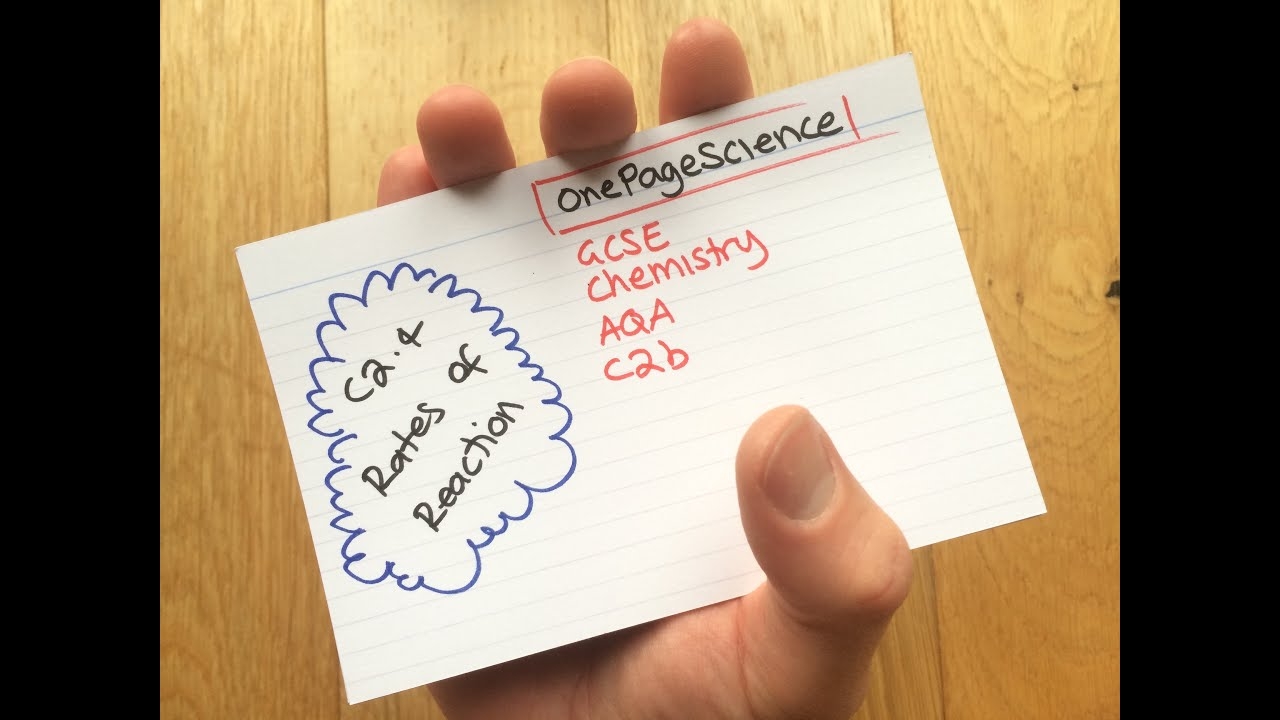 onePageScience
GCSE
Chemistry
AQA
C2b
C2.4
Rates of
Reaction